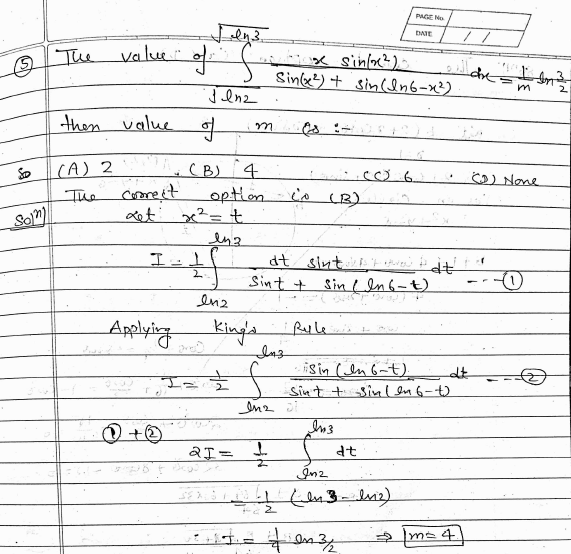 PAGE No.
DATE / /
⑤ The value of ∫_{√ln2}^{√ln3} x sin(x²) / (sin(x²) + sin(ln6-x²)) dx = 1/m ln 3/2
then value of m is :-
(A) 2 (B) 4 (C) 6 (D) None
So The correct option is (B)
Solⁿ) Let x² = t
I = 1/2 ∫_{ln2}^{ln3} dt sint / (sint + sin(ln6-t)) dt ---①
Applying King's Rule
I = 1/2 ∫_{ln2}^{ln3} sin(ln6-t) / (sint + sin(ln6-t)) dt ---②
① + ②
2I = 1/2 ∫_{ln2}^{ln3} dt
= 1/2 (ln3 - ln2)
I = 1/4 ln 3/2 ⇒ m=4